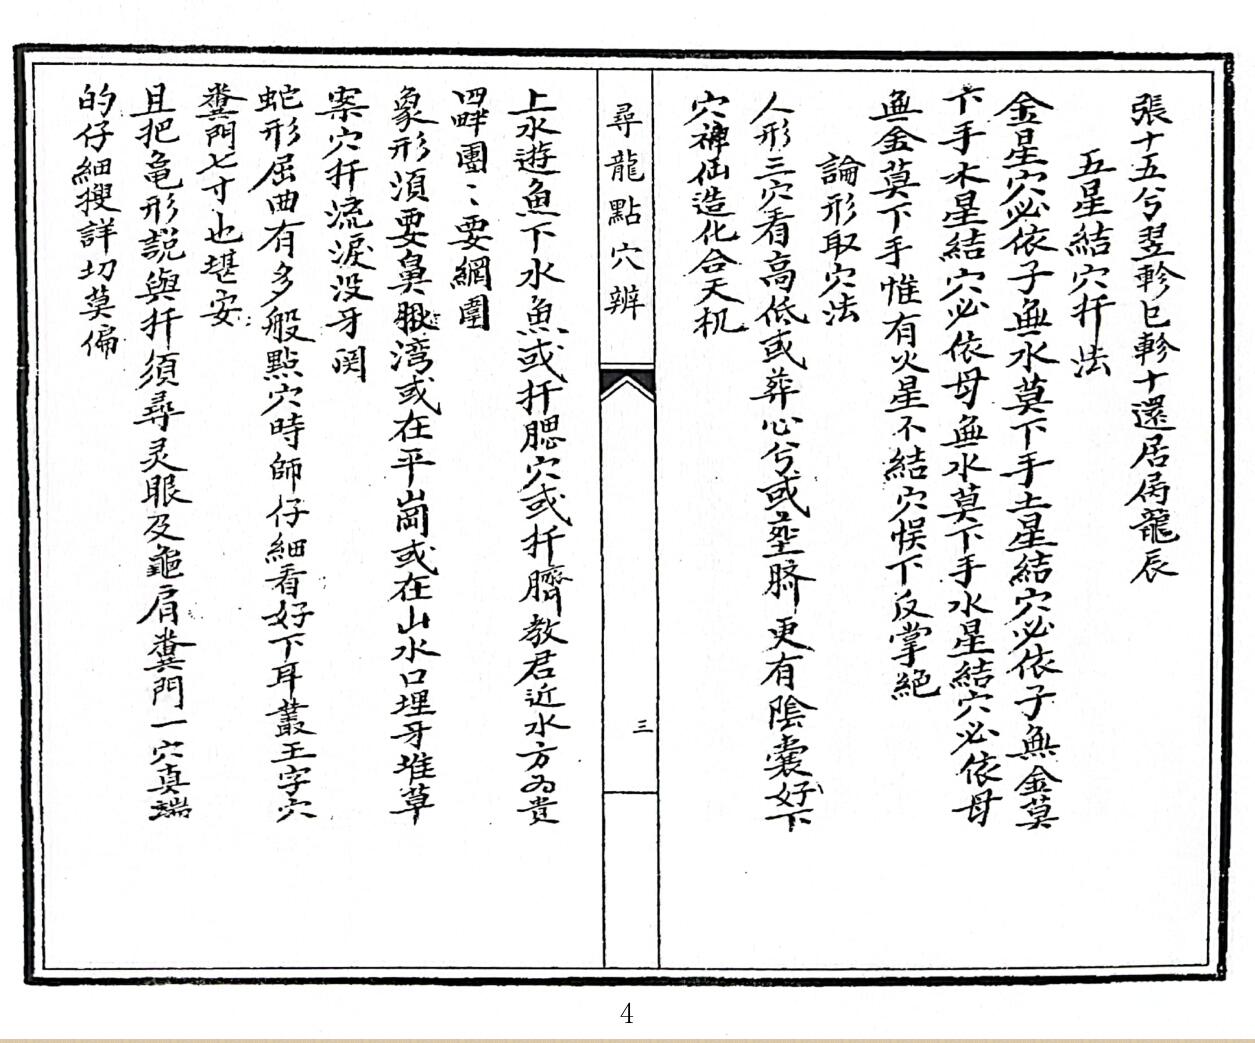 張十五兮翌軫巳軫十還居角龍辰
五星結穴扦法
金星穴必依子無水莫下手土星結穴必依子無金莫
下手木星結穴必依母無水莫下手水星結穴必依母
無金莫下手惟有火星不結穴悮下反掌絕
論形取穴法
人形三穴看高低或葬心兮或塟臍更有陰囊好下
穴神仙造化合天机
尋龍點穴辨
三
上水遊魚下水魚或扦腮穴或扦臍教君近水方為貴
四畔團〻要網圍
象形須要鼻湾或在平崗或在山水口埋牙堆草
案穴扦流淚没牙関
蛇形屈曲有多般點穴時師仔細看好下耳叢王字穴
糞門七寸也堪安
且把龟形説與扦須尋灵眼及龜肩糞門一穴真端
的仔細搜詳切莫偏
4